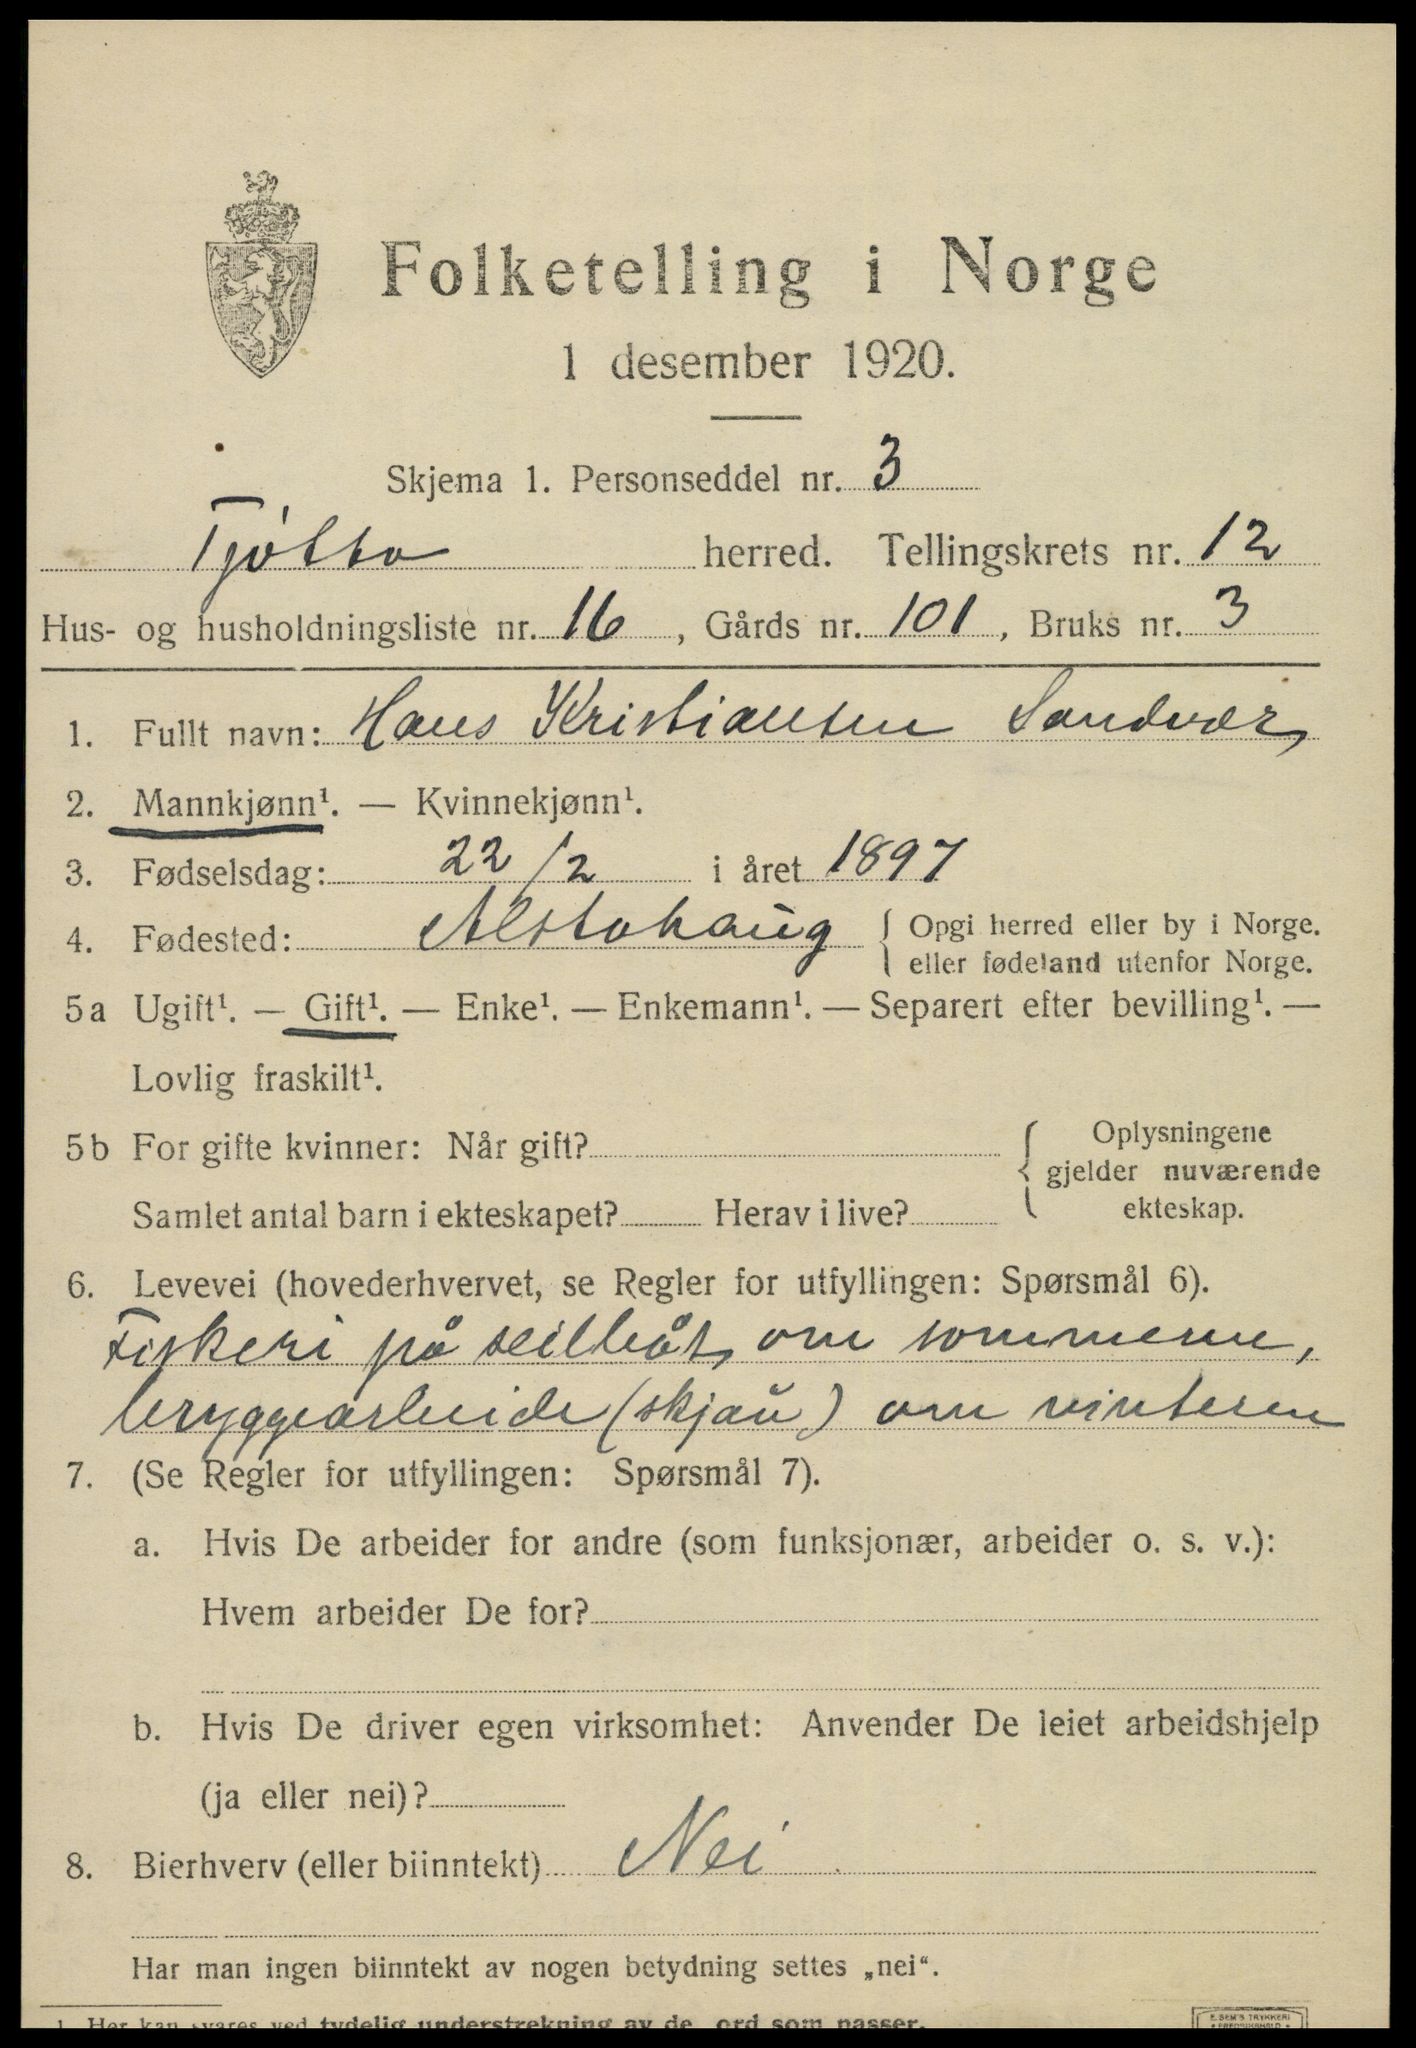 Folketelling i Norge
1 desember 1920.
Skjema 1. Personseddel nr. 3
Tjøtta herred. Tellingskrets nr. 12
Hus- og husholdningsliste nr. 16, Gårds nr. 101, Bruks nr. 3
1. Fullt navn: Hans Kristiansen Sandvær
2. Mannkjønn¹. — Kvinnekjønn¹.
3. Fødselsdag: 22/2 i året 1897
4. Fødested: Alstahaug { Opgi herred eller by i Norge.
eller fødeland utenfor Norge.
5a Ugift¹. — Gift¹. — Enke¹. — Enkemann¹. — Separert efter bevilling¹. —
Lovlig fraskilt¹.
5b For gifte kvinner: Når gift? { Oplysningene
gjelder nuværende
Samlet antal barn i ekteskapet? Herav i live? ekteskap.
6. Levevei (hovederhvervet, se Regler for utfyllingen: Spørsmål 6).
Fiskeri på seilbåt, om sommeren,
bryggearbeide (skjau) om vinteren
7. (Se Regler for utfyllingen: Spørsmål 7).
a. Hvis De arbeider for andre (som funksjonær, arbeider o. s. v.):
Hvem arbeider De for?
b. Hvis De driver egen virksomhet: Anvender De leiet arbeidshjelp
(ja eller nei)?
8. Bierhverv (eller biinntekt) Nei
Har man ingen biinntekt av nogen betydning settes „nei“.
1. Her kan svares ved tydelig understrekning av de ord som passer.
E. SEM'S TRYKKERI
FREDRIKSHALD